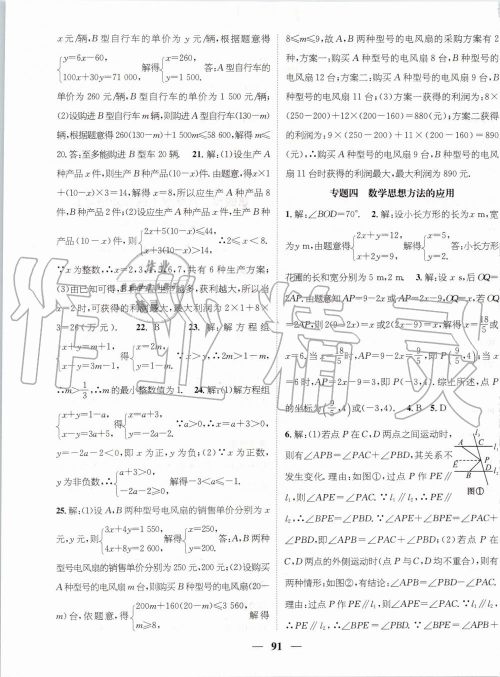 x元/辆,B型自行车的单价为 y元/辆,根据题意得
{y=6x-60, 100x+30y=71 000, 解得{x=260, y=1 500. 答:A型自行车的
单价为 260 元/辆,B型自行车的单价为 1 500 元/辆;
(2)设购进 B型自行车 m 辆,则购进 A型自行车(130-m)
辆,根据题意得 260(130-m)+1 500m≤58 600,解得 m≤
20. 答:至多能购进 B型车 20 辆. 21. 解:(1)设生产 A
种产品 x件,则生产 B种产品(10-x)件. 由题意,得x×1
+(10-x)×3=14,解得 x=8,所以应生产 A种产品 8
件,B种产品 2件;(2)设应生产 A种产品 x件,生产 B种
产品(10-x)件,则{2x+5(10-x)≤44, x+3(10-x)>14, ∴2≤x<8.
∵x为整数,∴x=2,3,4,5,6,7,共有 6种生产方案;
(3)由已知可得,B种产品生产越多,获利越大,所以当
x=2时,可获得的利润最大,最大利润为 2×1+8×
3=26(万元). 22. B 23. 解:解方程组
{x+y=m+1, x-y=3m-1, 得{x=2m, y=1-m. ∵x>y,∴2m>1-m,
∴m>1/3,∴m的最小整数值为 1. 24. 解:(1)解方程组
{x+y=1-a, x-y=3a+5, 得{x=a+3, y=-2a-2. ∵a>0,∴x=a+3>0,
y=-2a-2<0,即 x为正,y为负;(2)∵x为正数,
y为非负数,∴{a+3>0, -2a-2≥0, 解得-3<a≤-1.
25. 解:(1)设 A、B两种型号电风扇的销售单价分别为 x
元,y元,则{3x+4y=1 550, 4x+8y=2 600, 解得{x=250, y=200. 答:A、B两种
型号电风扇的销售单价分别为 250 元,200 元;(2)设采购
A种型号的电风扇 m台,则购买 B种型号的电风扇(20-
m)台,依题意,得{200m+160(20-m)≤3 560, m≥8, 解得
8≤m≤9,故 A,B 两种型号的电风扇的采购方案有 2
种,方案一:购买 A种型号的电风扇 8台,B种型号的电
风扇 12台;方案二:购买 A种型号的电风扇 9台,B种
型号的电风扇 11台;(3)方案一获得的利润为:8×
(250-200)+12×(200-160)=880(元);方案二获得
的利润为:9×(250-200)+11×(200-160)=890
(元),所以当购买 A种型号的电风扇 9台,B种型号的电风
扇 11台时获得的利润最大,最大利润为 890 元.
专题四 数学思想方法的应用
1. 解:∠BOD=70°. 2. 解:设小长方形的长为 x m,宽
为 y m,由题意得{2x+y=12, x+2y=9, 解得{x=5, y=2. 答:小长方形
花圃的长和宽分别为 5 m,2 m. 3. 解:设 x s,后OQ=
2AP. 由题意知 AP=9-2x或 2x-9,OQ=x,若 OQ=
2AP,则 2(9-2x)=x或 2(2x-9)=x,解得 x=18/5或
x=6. 当 x=18/5时,AP=9-2x=9/5,即P(-9/5,4);当
x=6时,AP=2x-9=3,即P(-3,4). 综上所述,点 P
的坐标为(-9/5,4)或(-3,4). 4. B 5. D
6. 解:(1)若点 P在 C,D两点之间运动时,
则有∠APB=∠PAC+∠PBD,其关系不
发生变化. 理由:如图①,过点 P作PE∥
l₁,则∠APE=∠PAC. ∵l₁∥l₂,∴PE∥
l₂,∴∠BPE=∠PBD. ∵∠APE+∠BPE=∠PAC+
∠PBD,即∠APB=∠PAC+∠PBD;(2)若点 P在
C、D两点的外侧运动时(点 P与 C、D均不重合),则有
两种情形:如图②,有结论:∠APB=∠PBD-∠PAC.
理由:过点 P作PE∥l₁,则∠APE=∠PAC. ∵l₁∥l₂,
∴PE∥l₂,∴∠BPE=∠PBD,∵∠APB+
A C l₁
E P
B D l₂
l₃
图①
91
作业精灵